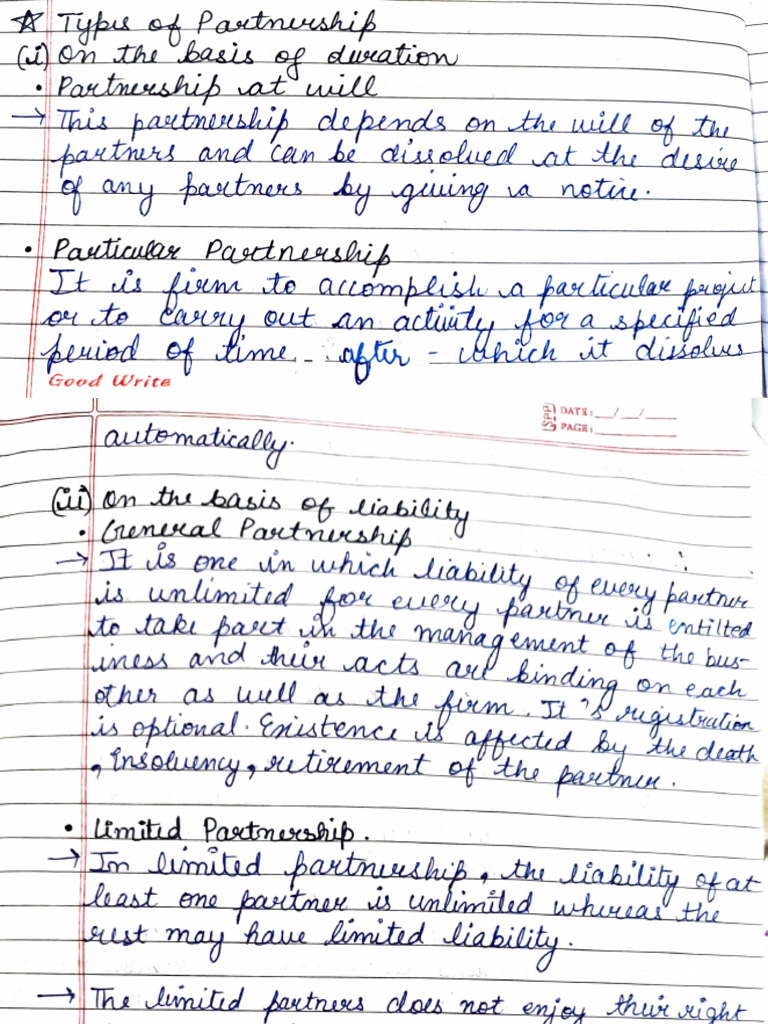 ☆ Types of Partnership
(i) On the basis of duration
• Partnership at will
→ This partnership depends on the will of the
partners and can be dissolved at the desire
of any partners by giving a notice.
• Particular Partnership
It is firm to accomplish a particular project
or to carry out an activity for a specified
period of time - after - which it dissolves
Good Write
SPP DATE: __/__/__
PAGE: ______
automatically.
(ii) On the basis of liability
• General Partnership
→ It is one in which liability of every partner
is unlimited for every partner is entilted
to take part in the management of the bus-
iness and their acts are binding on each
other as well as the firm. It's registration
is optional. Existence is affected by the death
, insolvency, retirement of the partner.
• Limited Partnership.
→ In limited partnership, the liability of at
least one partner is unlimited whereas the
rest may have limited liability.
→ The limited partners does not enjoy their right